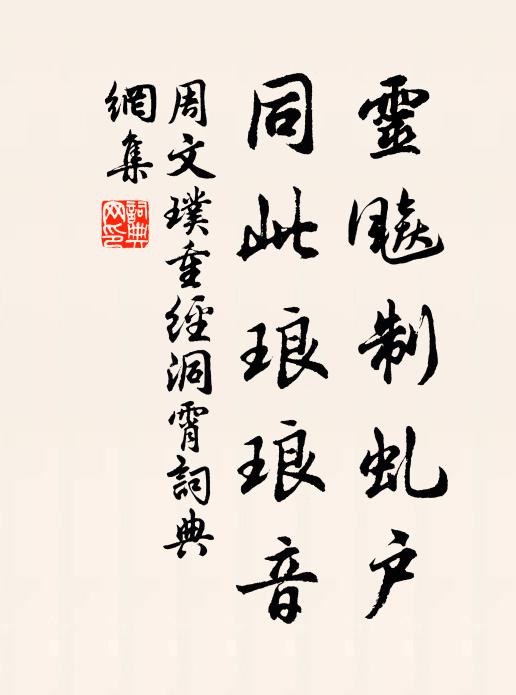 靈飈制虬户
同此琅琅音
周文璞重經洞霄詞典
網集
詞典
网印